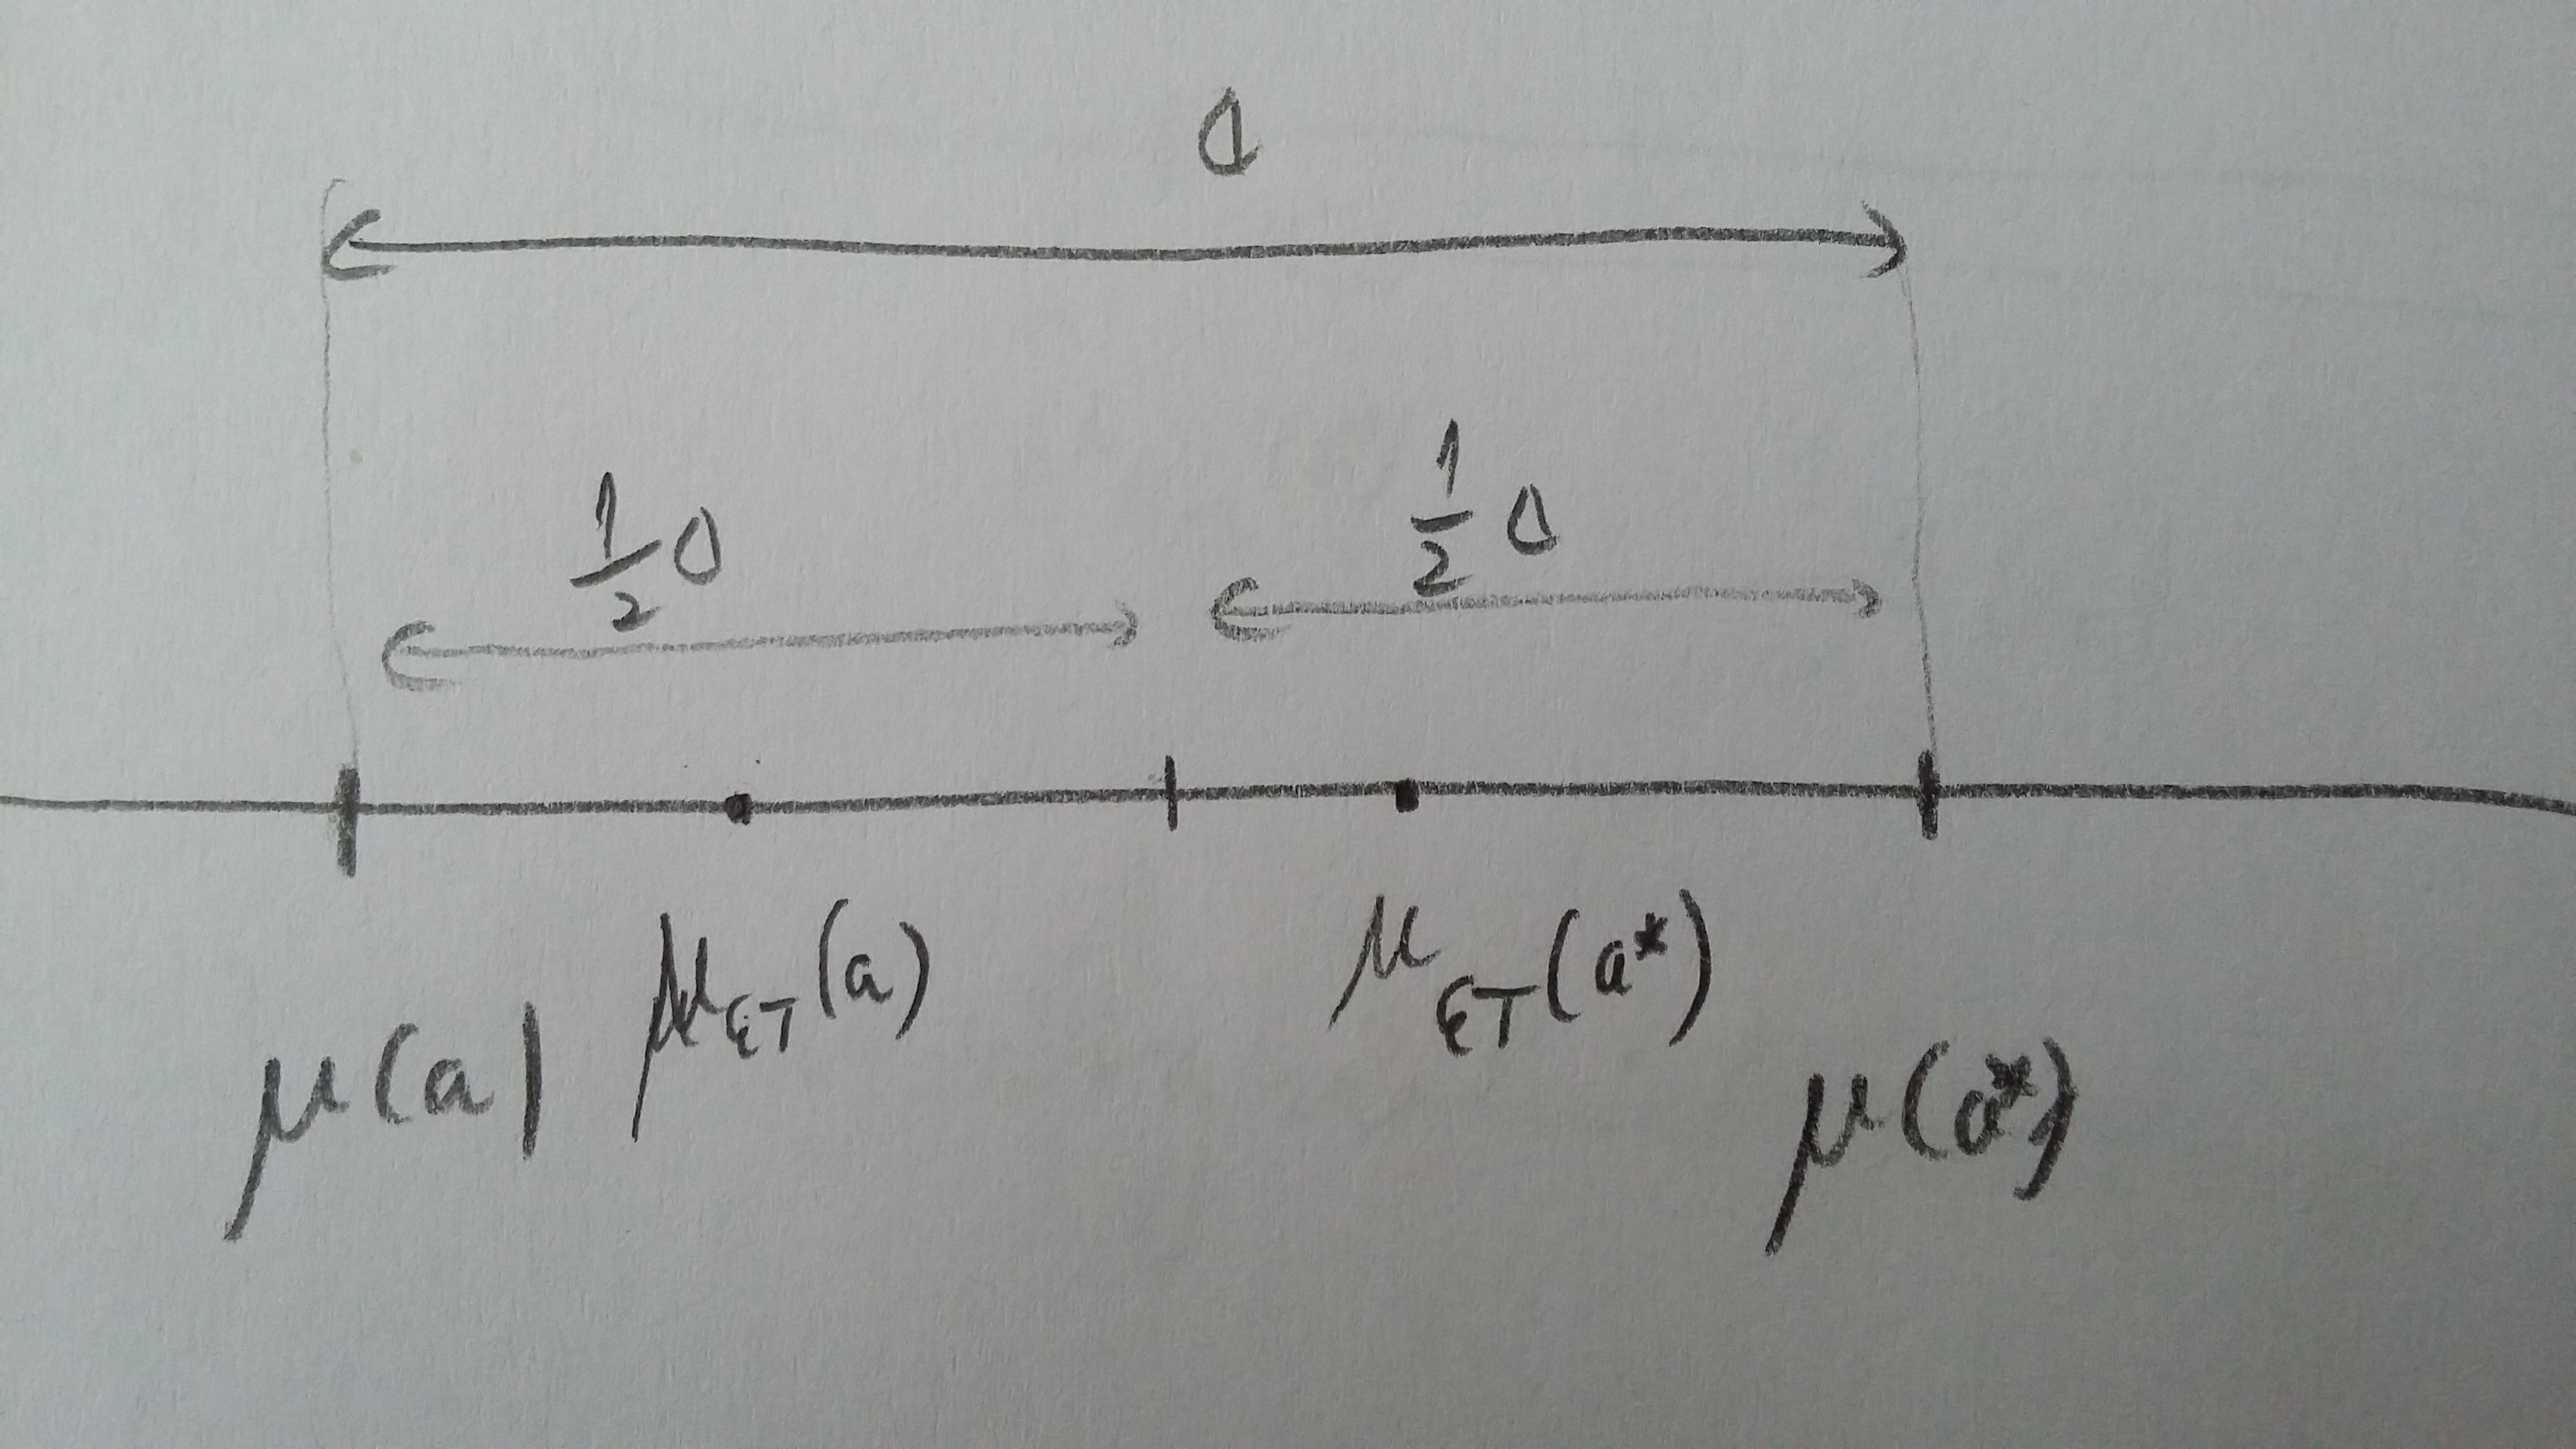 Δ
½ Δ ½ Δ
μ(a) μ_εT(a) μ_εT(a*) μ(a*)